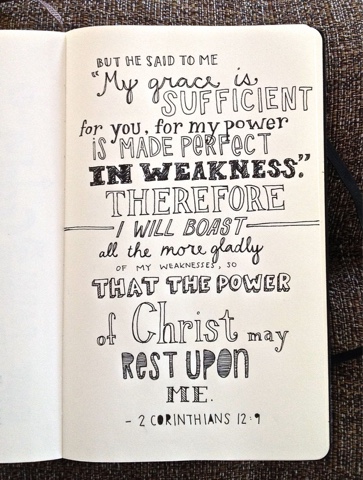 BUT HE SAID TO ME
"My grace is
SUFFICIENT
for you, for my power
IS MADE PERFECT
IN WEAKNESS."
THEREFORE
I WILL BOAST
all the more gladly
OF MY WEAKNESSES, SO
THAT THE POWER
of Christ may
REST UPON
ME.
- 2 CORINTHIANS 12:9